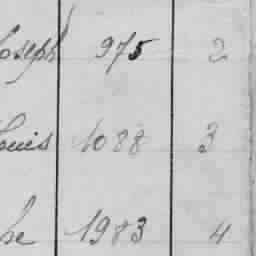 Joseph 975 2
Louis 1088 3
he 1983 4